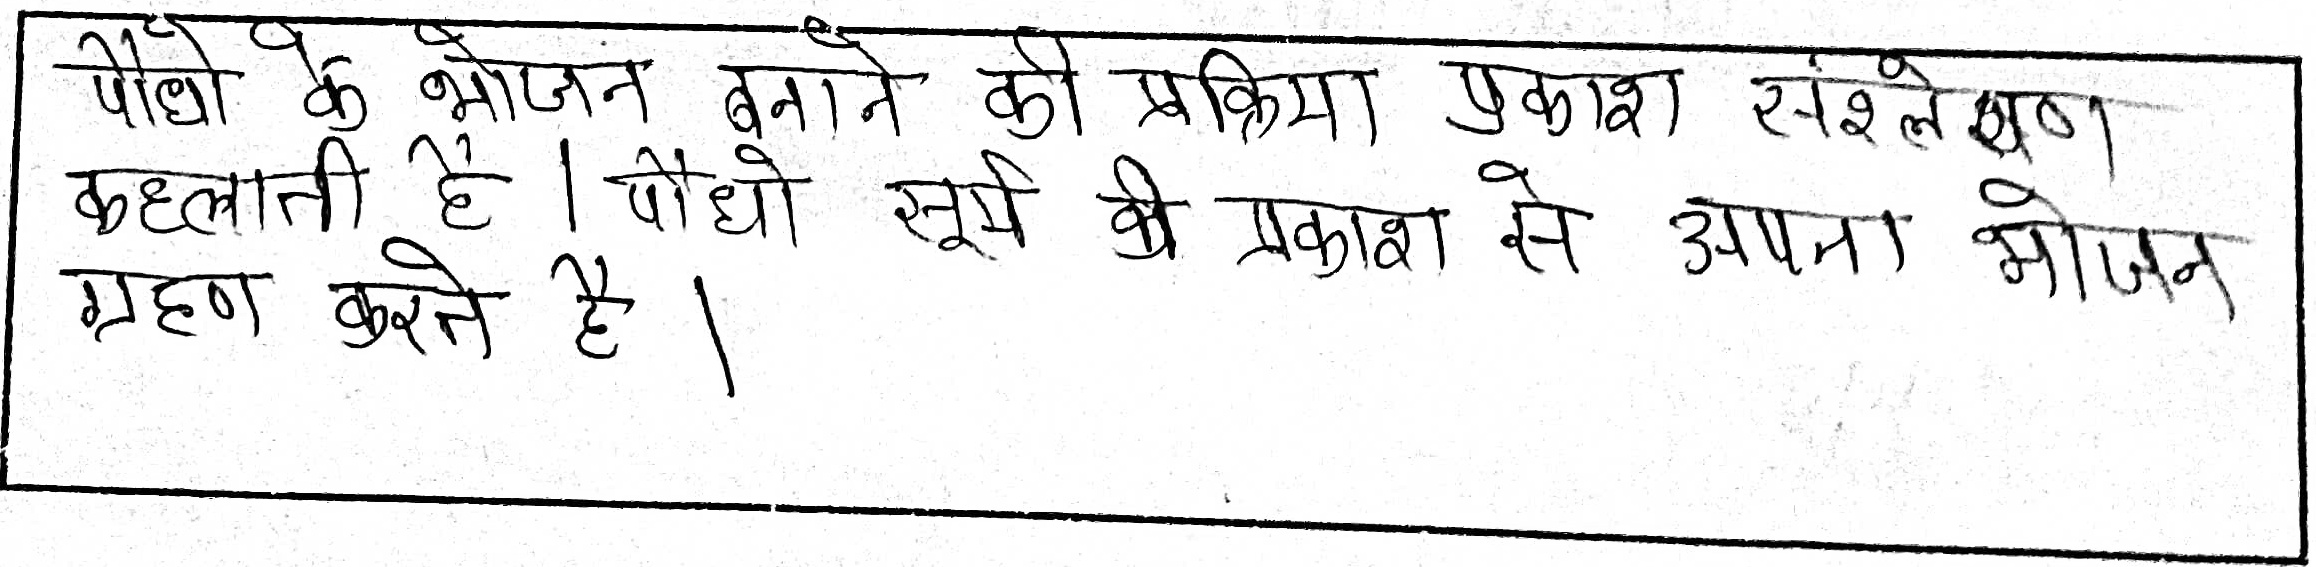 पौधो के भोजन बनाने की प्रक्रिया प्रकाश संश्लेषण
कहलाती है । पौधो सूर्य के प्रकाश से अपना भोजन
ग्रहण करते है ।